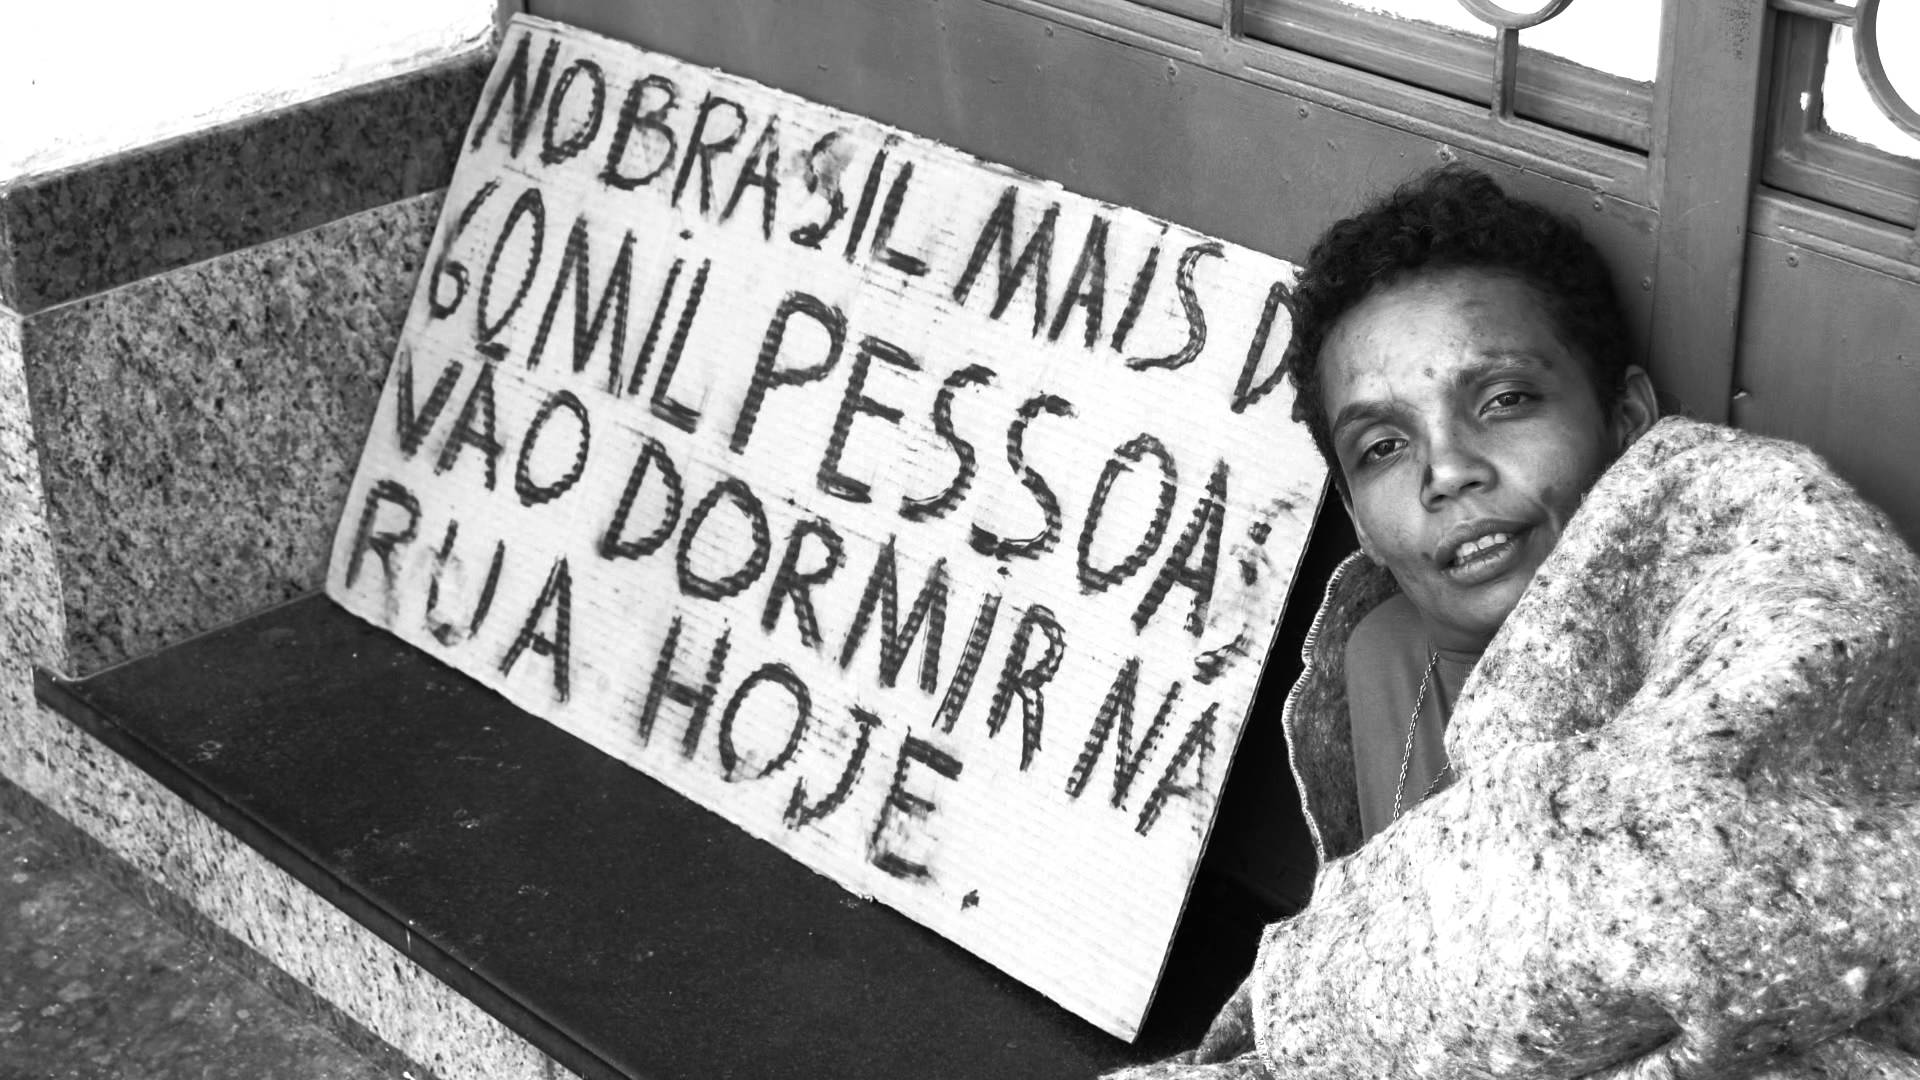 NO BRASIL MAIS D
60 MIL PESSOAS
VÃO DORMIR NA
RUA HOJE.